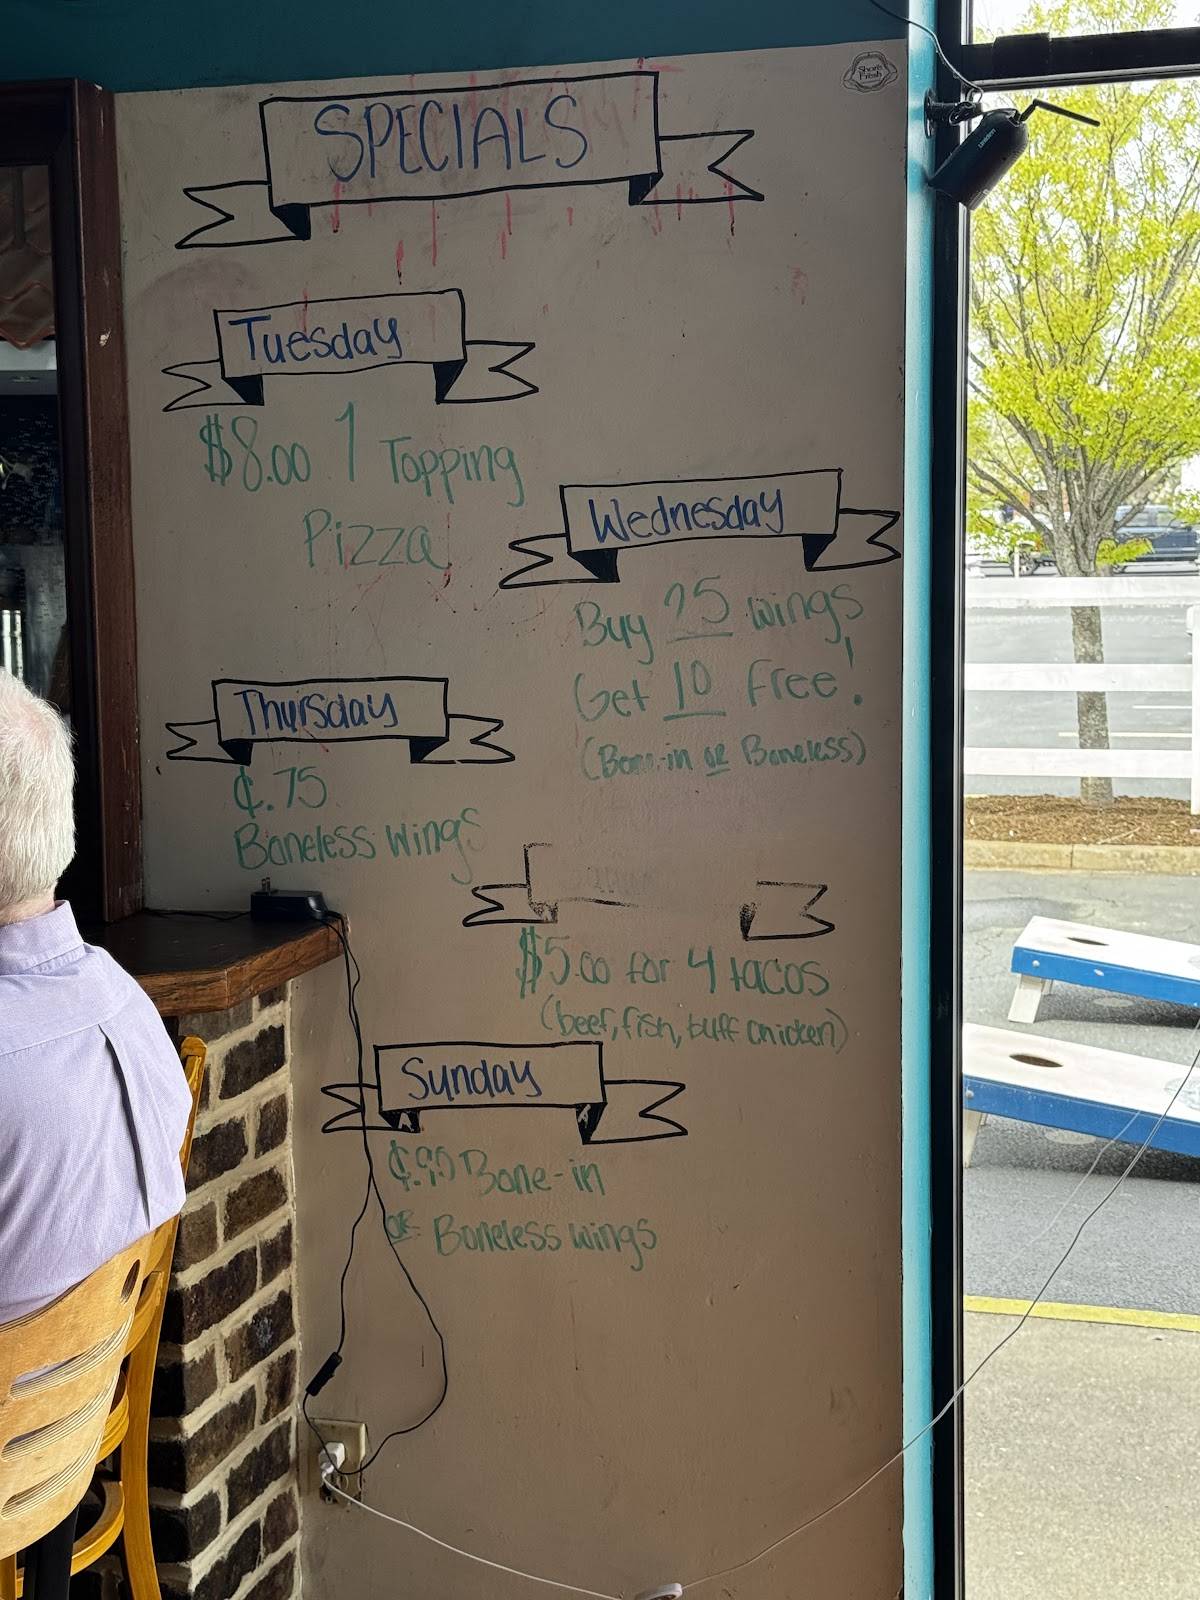 SPECIALS
Tuesday
$8.00 1 Topping
Pizza
Wednesday
Buy 25 wings,
Get 10 Free!
(Bone-in OR Boneless)
Thursday
¢.75
Boneless wings
$5.00 for 4 tacos
(beef, fish, buff chicken)
Sunday
¢.90 Bone-in
OR Boneless wings
uniden